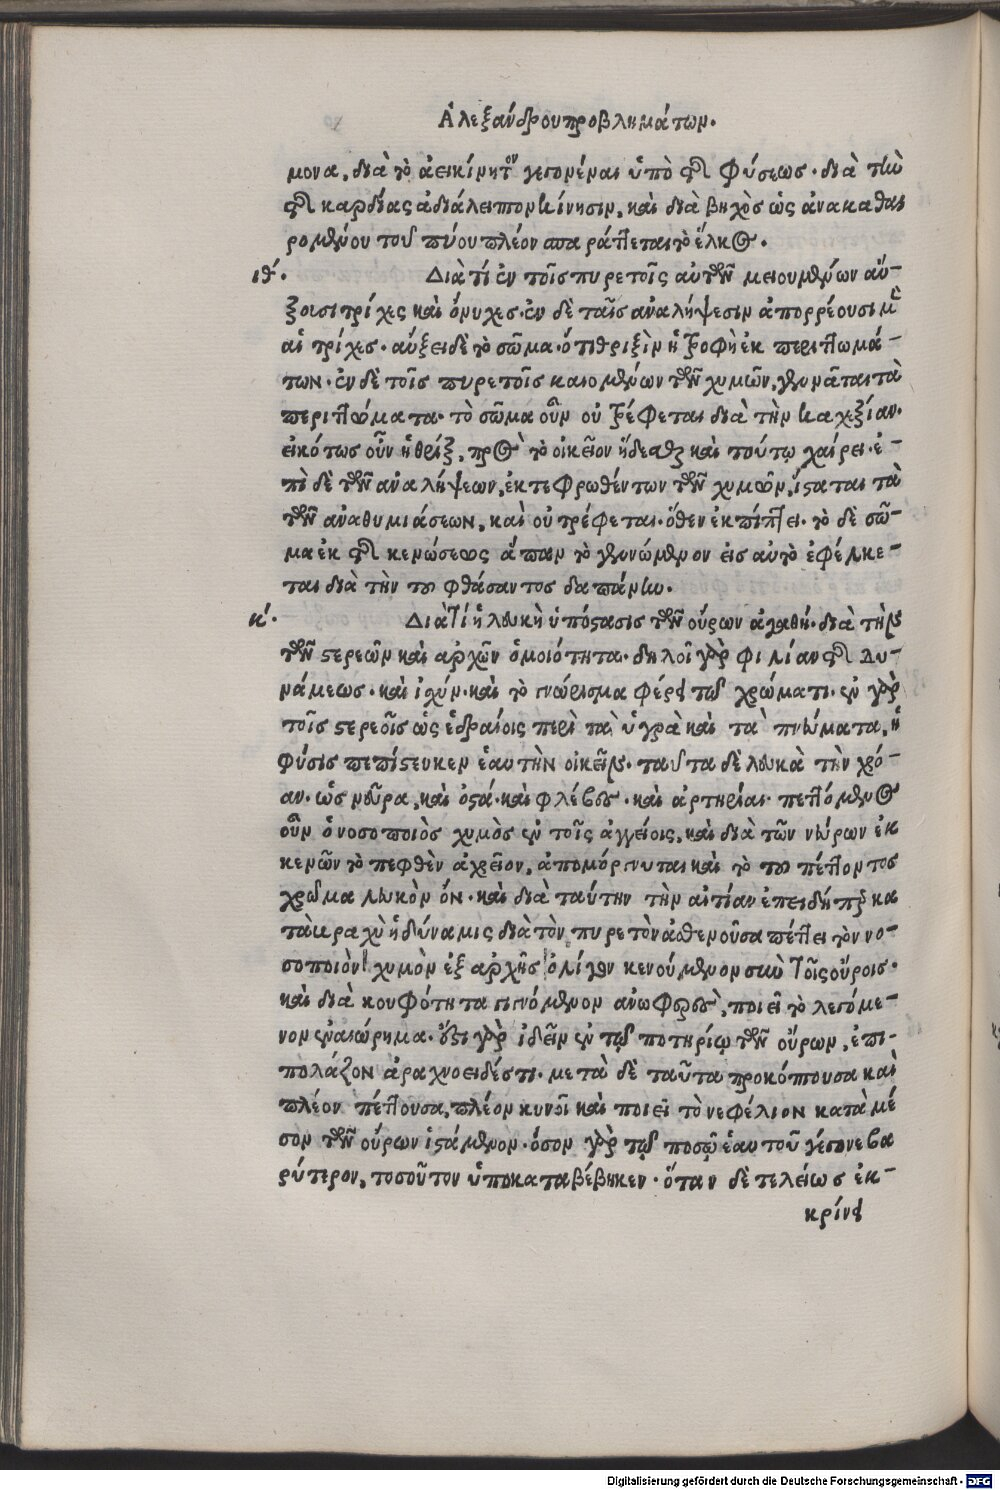 Ἀλεξάνδρου προβλημάτων.
μονα, διὰ τὸ ἀεικίνητον γεγονέναι ὑπὸ τῆς φύσεως. διὰ τὴν
τῆς καρδίας ἀδιάλειπον κίνησιν, καὶ διὰ βηχὸς ὡς ἀνακαθαι
ρομένου τοῦ πύου πλέον σπαράττεται τὸ ἕλκος.
ιθ´. Διὰ τί ἐν τοῖς πυρετοῖς αὐτῶν μειουμένων αὔ-
ξουσι τρίχες καὶ ὄνυχες. ἐν δὲ ταῖς ἀναλήψεσιν ἀπορρέουσι μὲ
αἱ τρίχες. αὔξει δὲ τὸ σῶμα. ὅτι θριξὶν ἡ τροφὴ ἐκ περιττωμά-
των. ἐν δὲ τοῖς πυρετοῖς καιομένων τῶν χυμῶν, γεννᾶται τὰ
περιττώματα. τὸ σῶμα οὖν οὐ τρέφεται διὰ τὴν καχεξίαν.
εἰκότως οὖν ἡ θρίξ, πρὸς τὸ οἰκεῖον ἥδεσθαι καὶ τούτῳ χαίρει. ἐ-
πὶ δὲ τῶν ἀναλήψεων, ἐκτεφρωθέντων τῶν χυμῶν, ἵσαται τὰ
τῶν ἀναθυμιάσεων, καὶ οὐ τρέφεται. ὅθεν ἐκπίπτει. τὸ δὲ σῶ-
μα ἐκ τῆς κενώσεως ἅπαν τὸ γεννώμενον εἰς αὐτὸ ἐφέλκε-
ται διὰ τὴν τοῦ φθάσαντος δαπάνην.
κ´. Διὰ τί ἡ λευκὴ ὑπόστασις τῶν οὔρων ἀγαθή. διὰ τὴν
τῶν στερεῶν καὶ ἀρχῶν ὁμοιότητα. δηλοῖ γὰρ φιλίαν τῆς δυ-
νάμεως. καὶ ἰσχύν. καὶ τὸ γνώρισμα φέρει τῷ χρώματι. ἐν γὰρ
τοῖς στερεοῖς ὡς ἑδραίοις περὶ τὰ ὑγρὰ καὶ τὰ πνεύματα, ἡ
φύσις πεπίστευκεν ἑαυτὴν οἰκεῖν. ταῦτα δὲ λευκὰ τὴν χρό-
αν. ὡς νεῦρα, καὶ ὀστά. καὶ φλέβες. καὶ ἀρτηρίαι. πεττόμενος
οὖν ὁ νοσοποιὸς χυμὸς ἐν τοῖς ἀγγείοις, καὶ διὰ τῶν νεύρων ἐκ
κενῶν τὸ πεφθὲν ἀχρεῖον, ἀπομόργνυται καὶ τὸ τοῦ πέττοντος
χρῶμα λευκὸν ὄν. καὶ διὰ ταύτην τὴν αἰτίαν ἐπειδήπερ κα
τὰ βραχὺ ἡ δύναμις διὰ τὸν πυρετὸν ἀσθενοῦσα πέττει τὸν νο-
σοποιὸν χυμὸν ἐξ ἀρχῆς ὀλίγον κενούμενον σὺν τοῖς οὔροις.
καὶ διὰ κουφότητα γιγνόμενον ἀνωφερὲς, ποιεῖ τὸ λεγόμε-
νον ἐναιώρημα. ἔστι γὰρ ἰδεῖν ἐν τῷ ποτηρίῳ τῶν οὔρων, ἐπι-
πολάζον ἀραχνοειδές τι. μετὰ δὲ ταῦτα προκόπτουσα καὶ
πλέον πέττουσα, πλέον κινεῖ καὶ ποιεῖ τὸ νεφέλιον κατὰ μέ
σον τῶν οὔρων ἱστάμενον. ὅσον γὰρ τῷ ποσῷ ἑαυτοῦ γέγονε βα
ρύτερον, τοσοῦτον ὑποκαταβέβηκεν. ὅταν δὲ τελείως ἐκ-
κρίνει
Digitalisierung gefördert durch die Deutsche Forschungsgemeinschaft - DFG